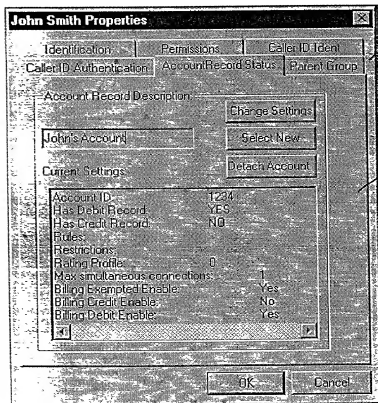 John Smith Properties
Identification Permissions Caller ID Ident
Caller ID Authentication Account Record Status Parent Group
Account Record Description
Change Settings
John's Account Select New
Current Settings Detach Account
Account ID: 1234
Has Debit Record: YES
Has Credit Record: NO
Rules:
Restrictions:
Rating Profile: 0
Max simultaneous connections: 1
Billing Exempted Enable: Yes
Billing Credit Enable: No
Billing Debit Enable: Yes
OK Cancel